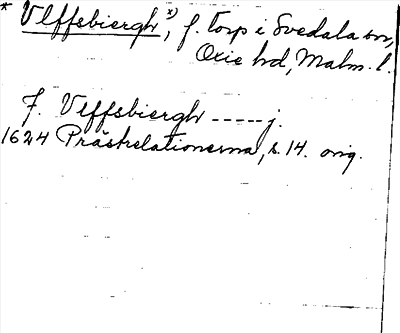 * Ulffsbiergh *), f. torp i Svedala sn,
Oxie hd, Malm. l.
F. Veffsbiergh ----- j.
1624 Prästrelationerna, s. 14. orig.